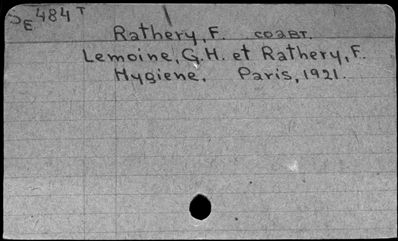 484 T
E
Rathery, F. соавт.
Lemoine, G.H. et Rathery, F.
Hygiene. Paris, 1921.